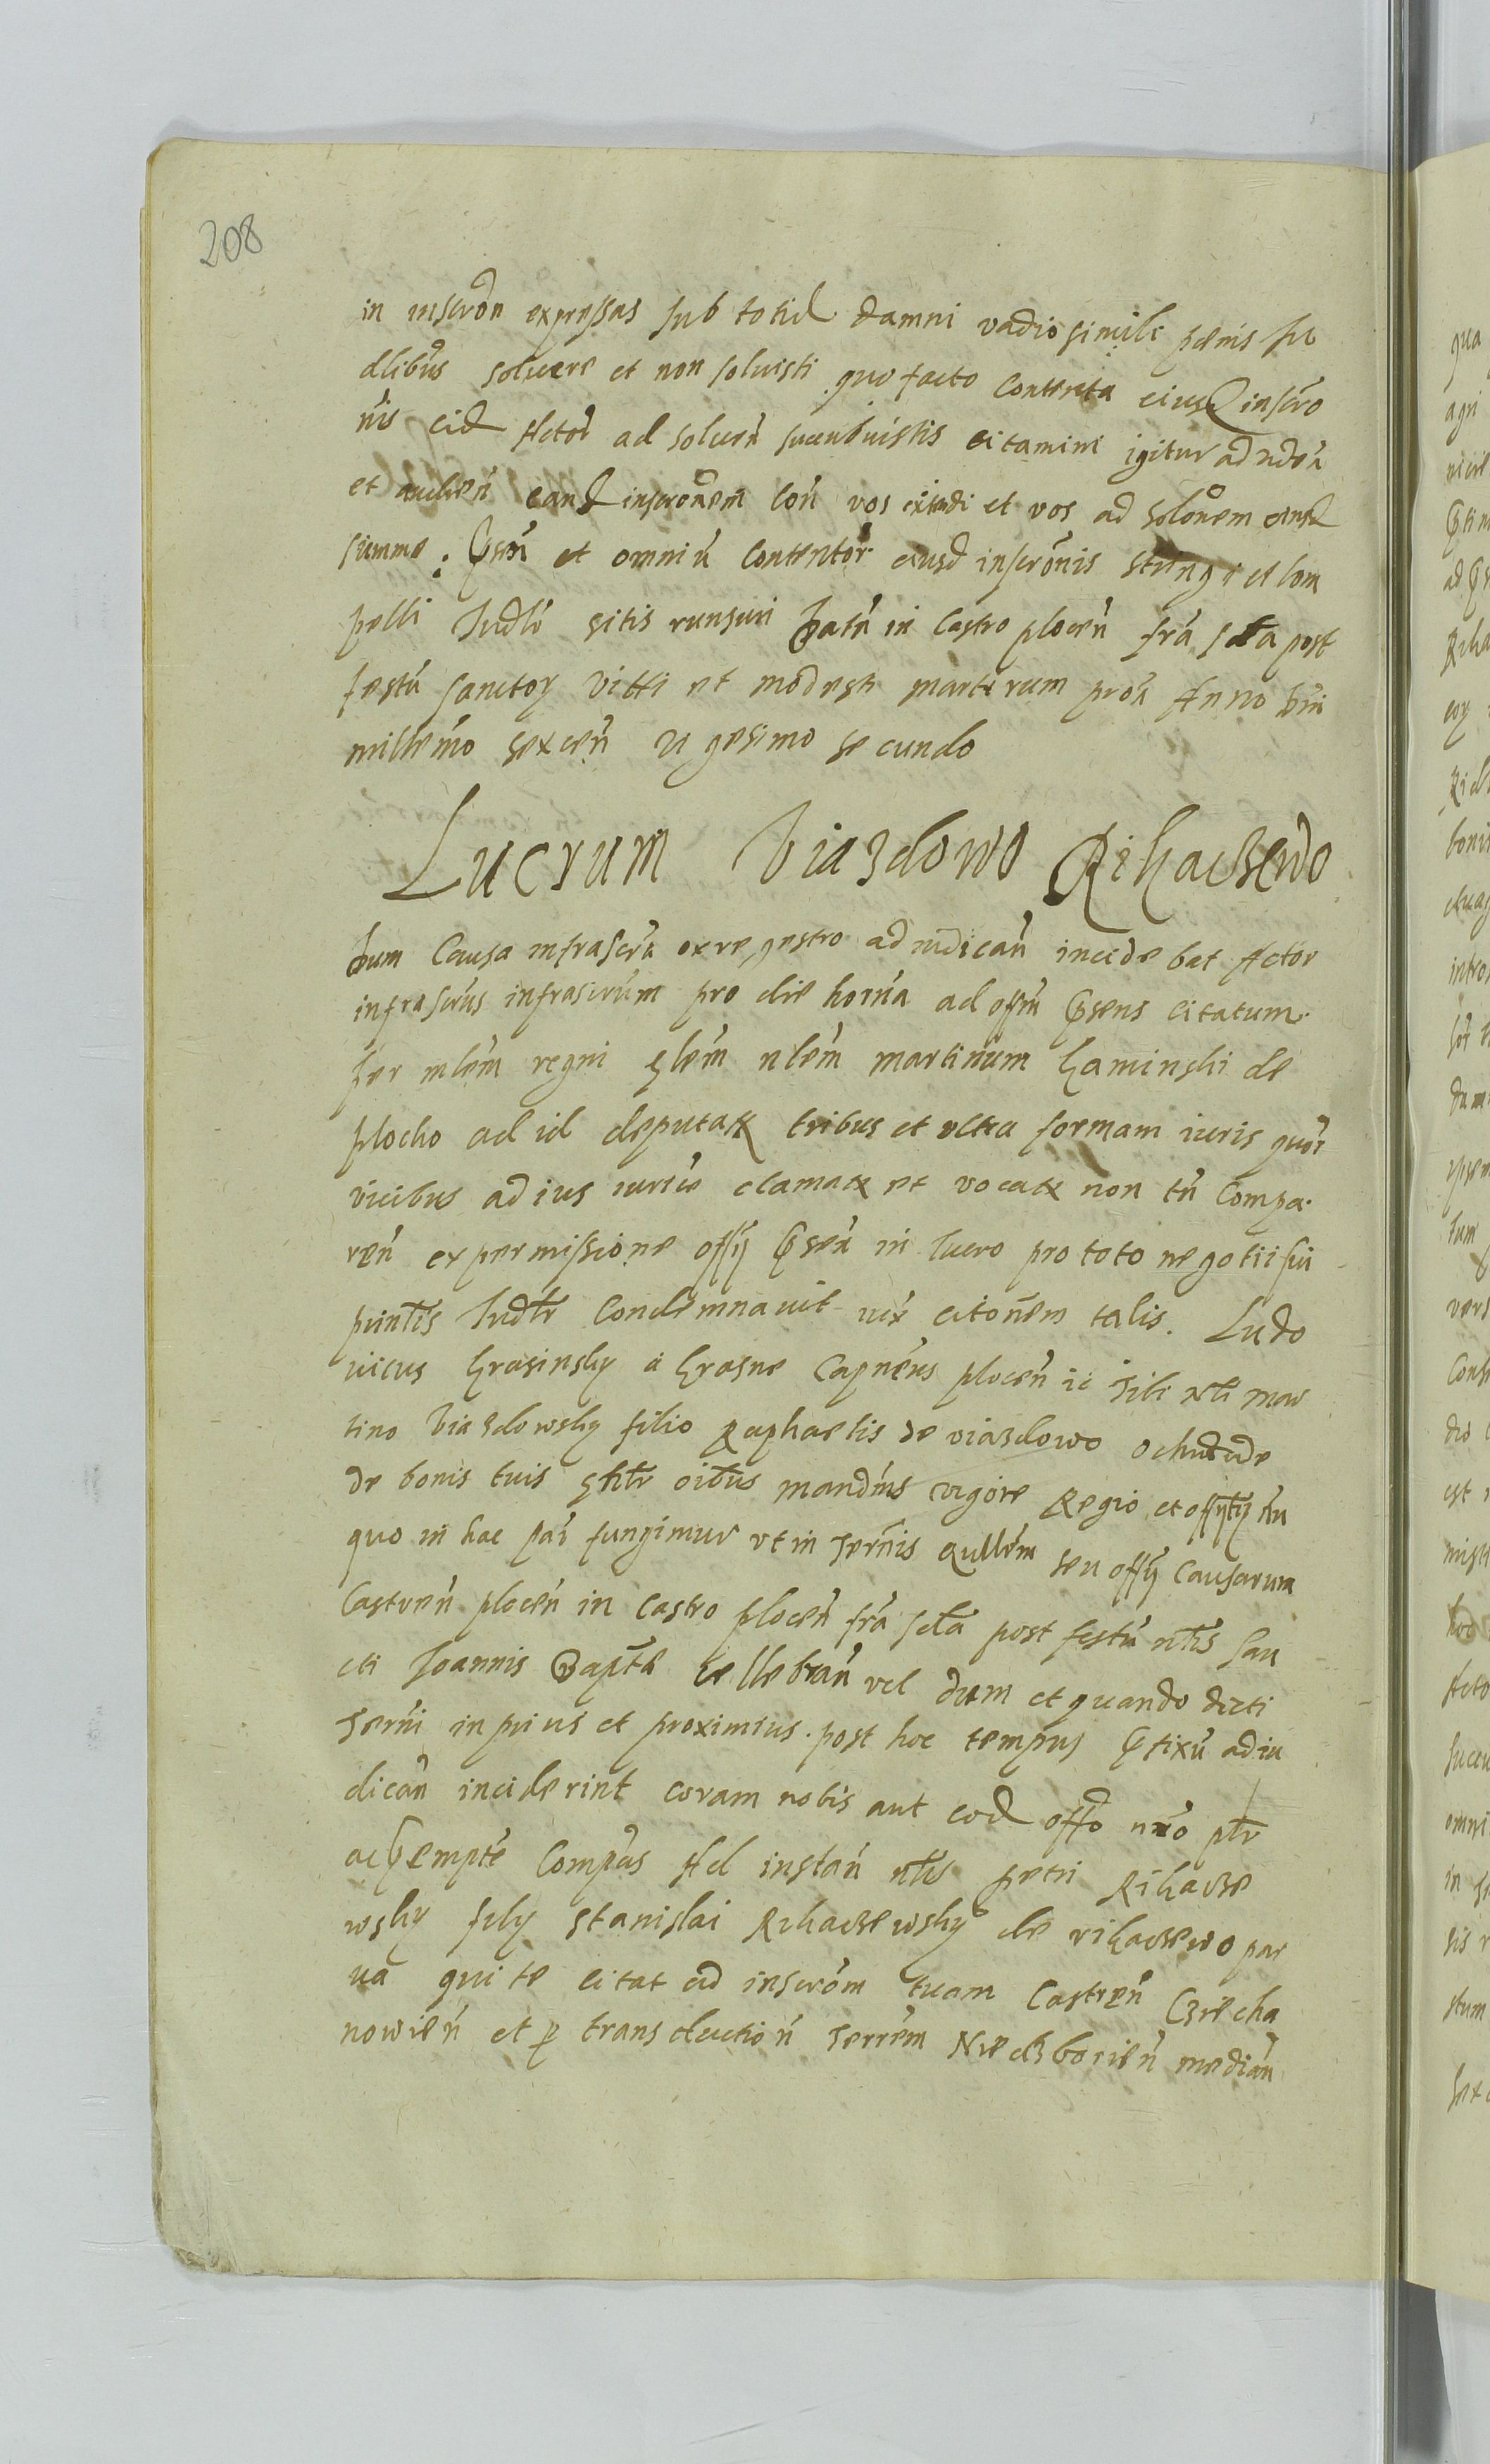 208
in inscron expressas sub totid damni vadio simile pœnis Iu
dlibus solvere et non solvisti quo facto Contenta eiusd inscro
nis eid Actor ad solven sucubuistis citamini igitur ad viden
et audien eand inscronem Con vos extendi et vos ad solonem eiusd
summe pnsn et omniu Contentor eiusd inscronis stringi et Com
pelli Iudlr sitis runsuri Datu in Castro plocen fra scda post
festu sanctor Vitti et modesti martirum proa Anno Dni
millemo sexcen vigesimo secundo
Lucrum Viazdowo Rikaczewo
Dum Causa infrascra ex regestro ad iudican incidebat Actor
infrascrus infrascrum pro die horna ad offm pnsens citatum
per mlem regni glem nlem martinum kaminski de
plocko ad id deputatx tribus et ultra formam iuris quor
vicibus ad ius iurice clamatx et vocatx non tn Compa
ren ex permissione offy pnsen in lucro pro toto negotii sui
printis Iudlr Condemnavit iux citonem talis. Ludo
vicus krasinsky a krasne Capneus plocen ic Tibi nli mar
tino Viazdowsky filio Raphaelis de viazdowo
de bonis tuis gnlr oibus mandms vigore Regio et
quo in hac par fungimur ut in Termis qullem seu offy Causarum
Castren plocen in Castro plocen fra scda post festu ntis San
cti Ioannis Bapte cellebran vel dum et quando dicti
Termi inprius et proximius post hoc tempus pfixu ad iu
dican inciderint coram nobis aut eod offo nro plr
ac pempte Compas Ad instan nlis petri Rikacze
wsky fily stanislai Rikaczewsky de rikaczewo par
va qui te citat ad inscrom tuam Castren Cziecha
nowien et p transduction Terrem Niedzborien median